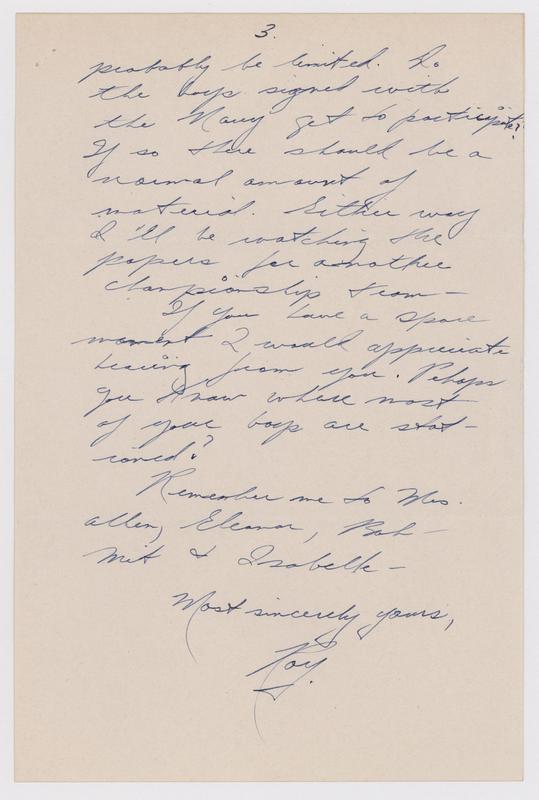 3.
probably be limited. Do
the boys signed with
the Navy get to participate?
If so there should be a
normal amount of
material. Either way
I'll be watching the
papers for another
championship team—
If you have a spare
moment I would appreciate
hearing from you. Pehaps
you know where most
of your boys are stat-
ioned?
Remember me to Mrs.
Allen, Eleanor, Bob—
Mit & Isabelle—
Most sincerely yours,
Roy.